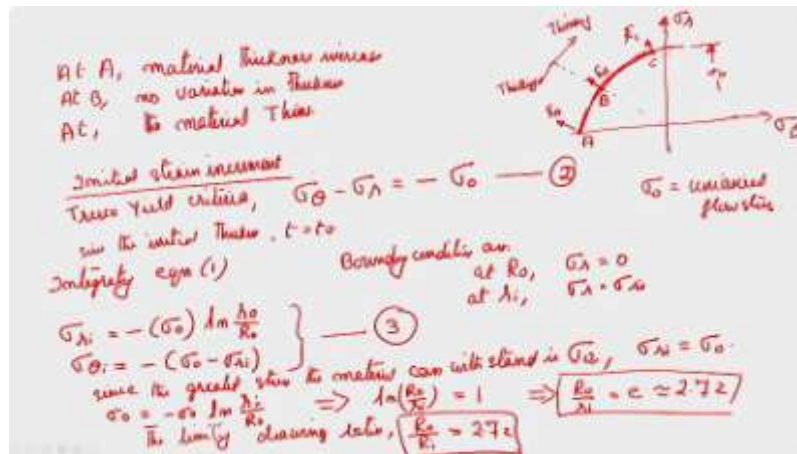 At A, material thickness increase
At B, no variation in thickness
At, the material Thins
Thinning
Thickening
σr
σθ
A
B
C
σo = uniaxial flow stress
Initial strain increment
Tresca Yield criteria, σθ - σr = - σo — (2)
since the initial thickness, t = to
Integrating eqn (1)
Boundary condition are
at Ro, σr = 0
at ri, σr = σri
σri = -(σo) ln ri/Ro
σθi = -(σo - σri)
— (3)
since the greatest stress the material can with stand is σo, σri = σo.
σo = -σo ln ri/Ro ⇒ ln(Ro/ri) = 1 ⇒ Ro/ri = e ≈ 2.72
The limiting drawing ratio, Ro/Ri = 2.72